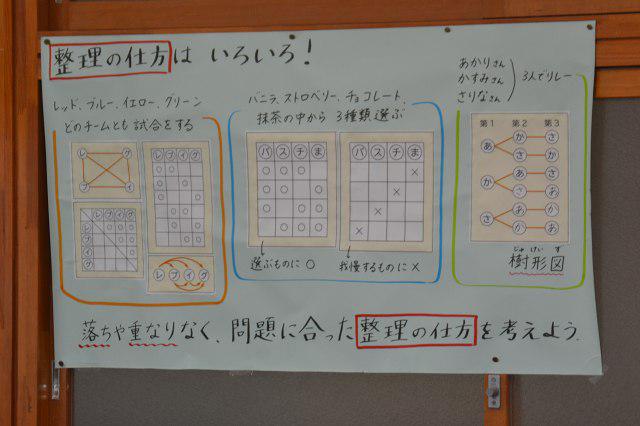 整理の仕方は いろいろ!
レッド、ブルー、イエロー、グリーン
どのチームとも 試合をする
バニラ、ストロベリー、チョコレート、
抹茶の中から 3種類選ぶ
バ ス チ ま
バ ス チ ま
選ぶものに ○
我慢するものに ×
あかりさん
かすみさん
さりなさん
3人でリレー
第1 第2 第3
あ か さ
さ か
か あ さ
さ あ
さ あ か
か あ
じゅ けい ず
樹形図
レ ブ イ グ
レ ブ イ グ
落ちや重なりなく、問題に合った 整理の仕方 を考えよう.